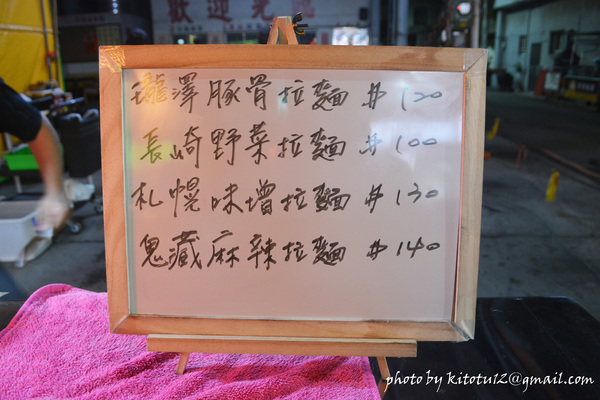 歡迎光臨
瀧澤豚骨拉麵 # 120
長崎野菜拉麵 # 100
札幌味增拉麵 # 130
鬼藏麻辣拉麵 # 140
photo by kitotu12@gmail.com